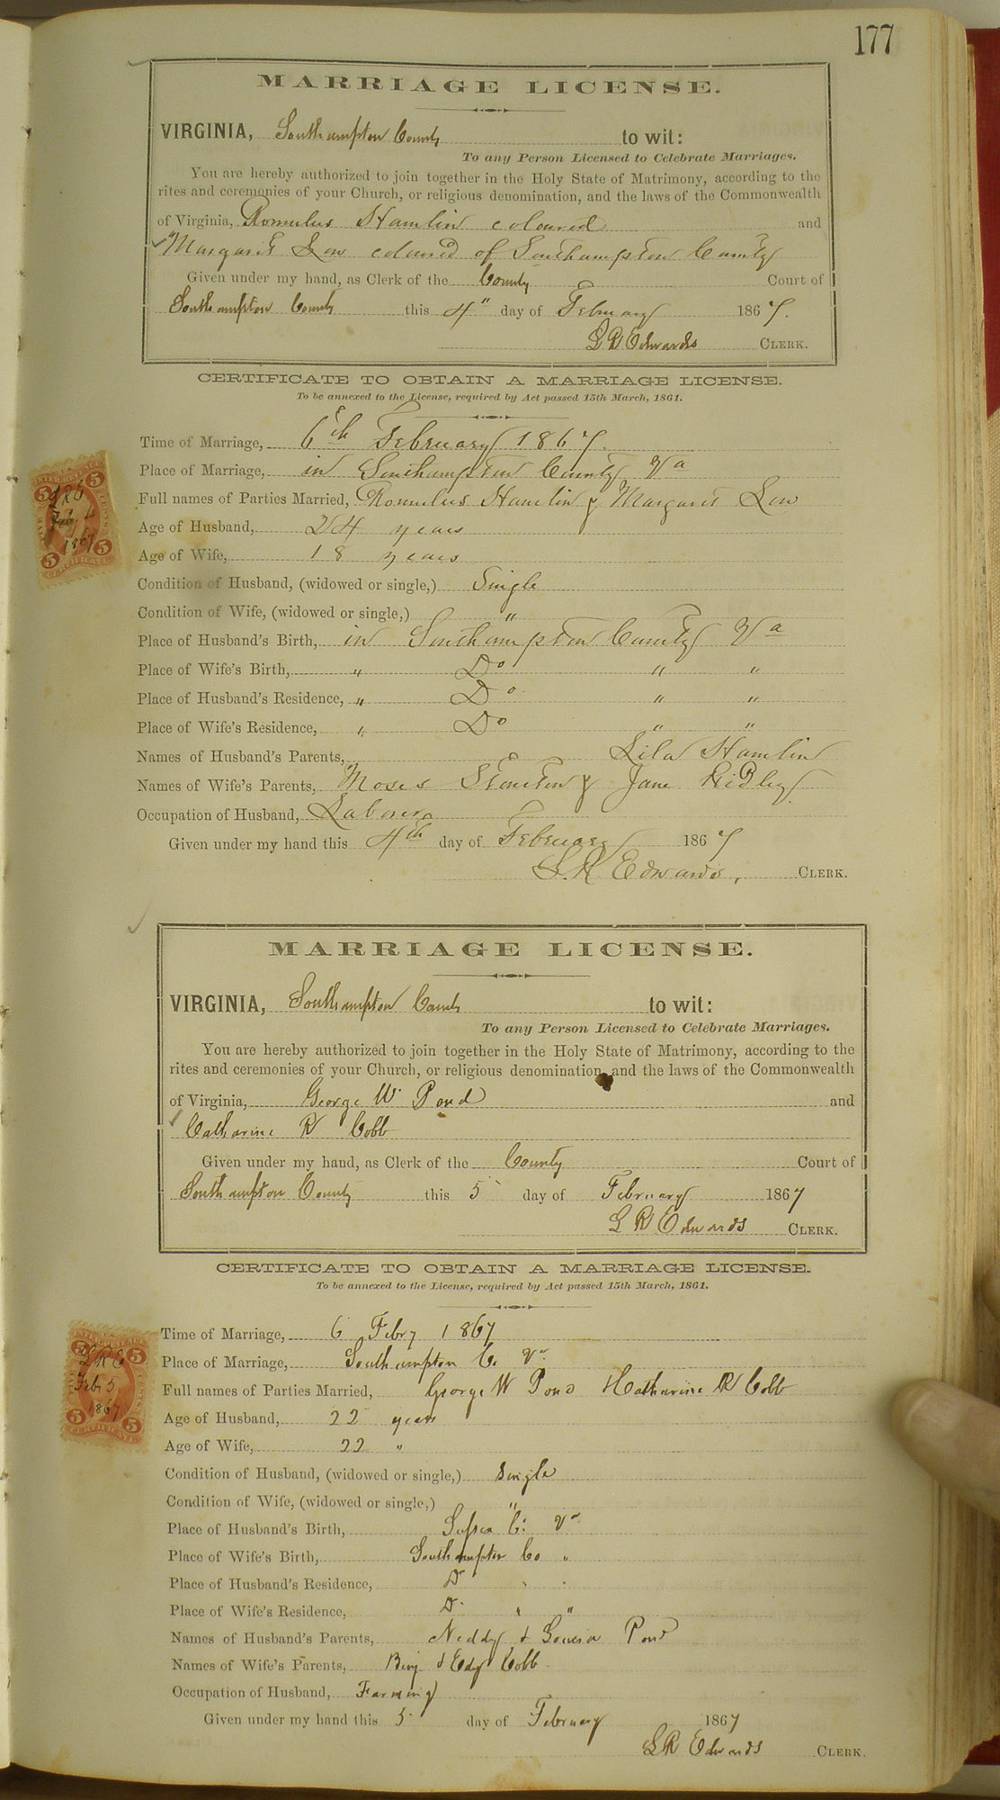 177
MARRIAGE LICENSE.
VIRGINIA, Southampton County to wit:
To any Person Licensed to Celebrate Marriages.
You are hereby authorized to join together in the Holy State of Matrimony, according to the
rites and ceremonies of your Church, or religious denomination, and the laws of the Commonwealth
of Virginia, Romulus Hamlin coloured and
Margaret Low coloured of Southampton County
Given under my hand, as Clerk of the County Court of
Southampton County this 4" day of February 1867.
L R Edwards CLERK.
CERTIFICATE TO OBTAIN A MARRIAGE LICENSE.
To be annexed to the License, required by Act passed 15th March, 1861.
Time of Marriage, 6th February 1867.
Place of Marriage, in Southampton County Va
Full names of Parties Married, Romulus Hamlin & Margaret Low
Age of Husband, 24 years
Age of Wife, 18 years
Condition of Husband, (widowed or single,) Single
Condition of Wife, (widowed or single,) "
Place of Husband's Birth, in Southampton County Va
Place of Wife's Birth, " Do " "
Place of Husband's Residence, " Do " "
Place of Wife's Residence, " Do " "
Names of Husband's Parents, Lila Hamlin
Names of Wife's Parents, Moses & Jane Ridley
Occupation of Husband, Laborer
Given under my hand this 4th day of February 1867
L. R Edwards, CLERK.
5 5
LRE
Feby
1867
5 5
CERTIFICATE
MARRIAGE LICENSE.
VIRGINIA, Southampton County to wit:
To any Person Licensed to Celebrate Marriages.
You are hereby authorized to join together in the Holy State of Matrimony, according to the
rites and ceremonies of your Church, or religious denomination, and the laws of the Commonwealth
of Virginia, George W Pond and
Catharine R Cobb
Given under my hand, as Clerk of the County Court of
Southampton County this 5 day of February 1867
L R Edwards CLERK.
CERTIFICATE TO OBTAIN A MARRIAGE LICENSE.
To be annexed to the License, required by Act passed 15th March, 1861.
Time of Marriage, 6 Febry 1867
Place of Marriage, Southampton Co Va
Full names of Parties Married, George W Pond & Catharine R Cobb
Age of Husband, 22 years
Age of Wife, 22 "
Condition of Husband, (widowed or single,) Single
Condition of Wife, (widowed or single,) "
Place of Husband's Birth, Sussex Co Va
Place of Wife's Birth, Southampton Co "
Place of Husband's Residence, Do
Place of Wife's Residence, Do " "
Names of Husband's Parents, Neddy & Pond
Names of Wife's Parents, Benj & Edy Cobb
Occupation of Husband, Farming
Given under my hand this 5 day of February 1867
L R Edwards CLERK.
5 5
LRE
Feb 5
1867
5 5
CERTIFICATE